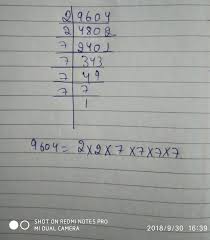 2 9604
2 4802
7 2401
7 343
7 49
7 7
1
9604 = 2×2×7×7×7×7
SHOT ON REDMI NOTE5 PRO
MI DUAL CAMERA
2018/9/30 16:39